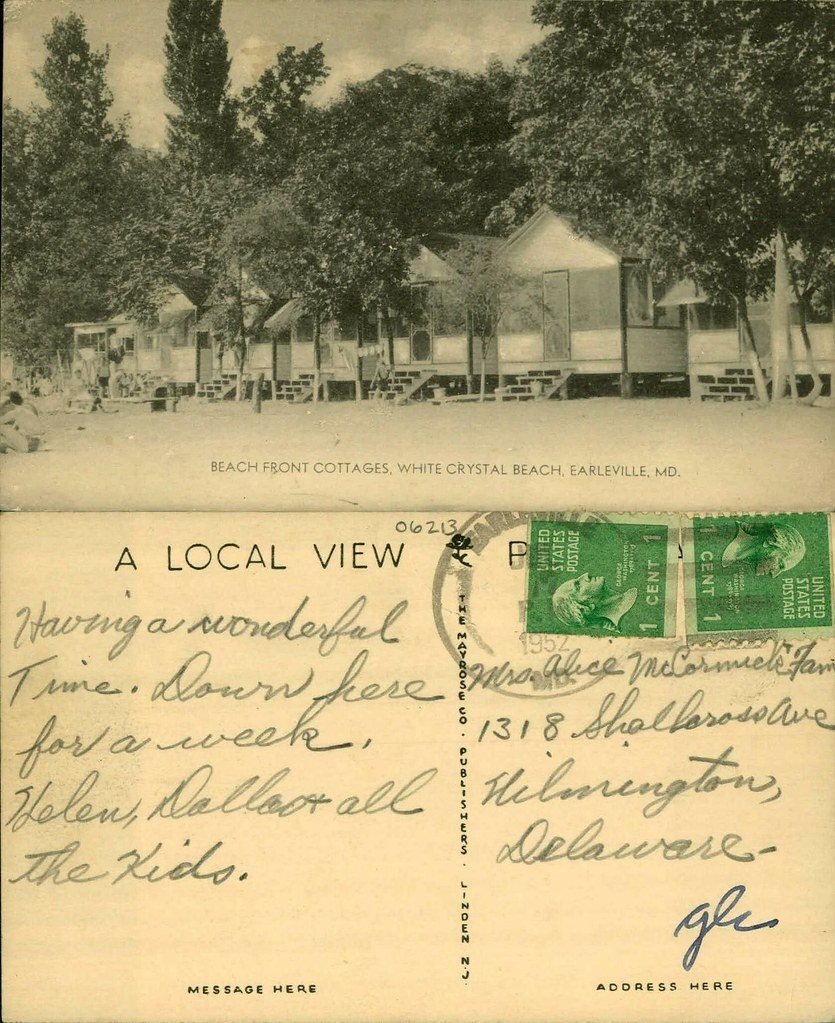 BEACH FRONT COTTAGES, WHITE CRYSTAL BEACH, EARLEVILLE, MD.
06213
A LOCAL VIEW
EARLEVILLE
1952
MD.
UNITED STATES POSTAGE
1 CENT 1
UNITED STATES POSTAGE
1 CENT 1
Having a wonderful
Time. Down here
for a week.
Helen, Dallas + all
the Kids.
THE MAYROSE CO. PUBLISHERS. LINDEN N.J.
Mrs. Alice McCormick Fam
1318 Shallcross Ave
Wilmington,
Delaware-
MESSAGE HERE
ADDRESS HERE